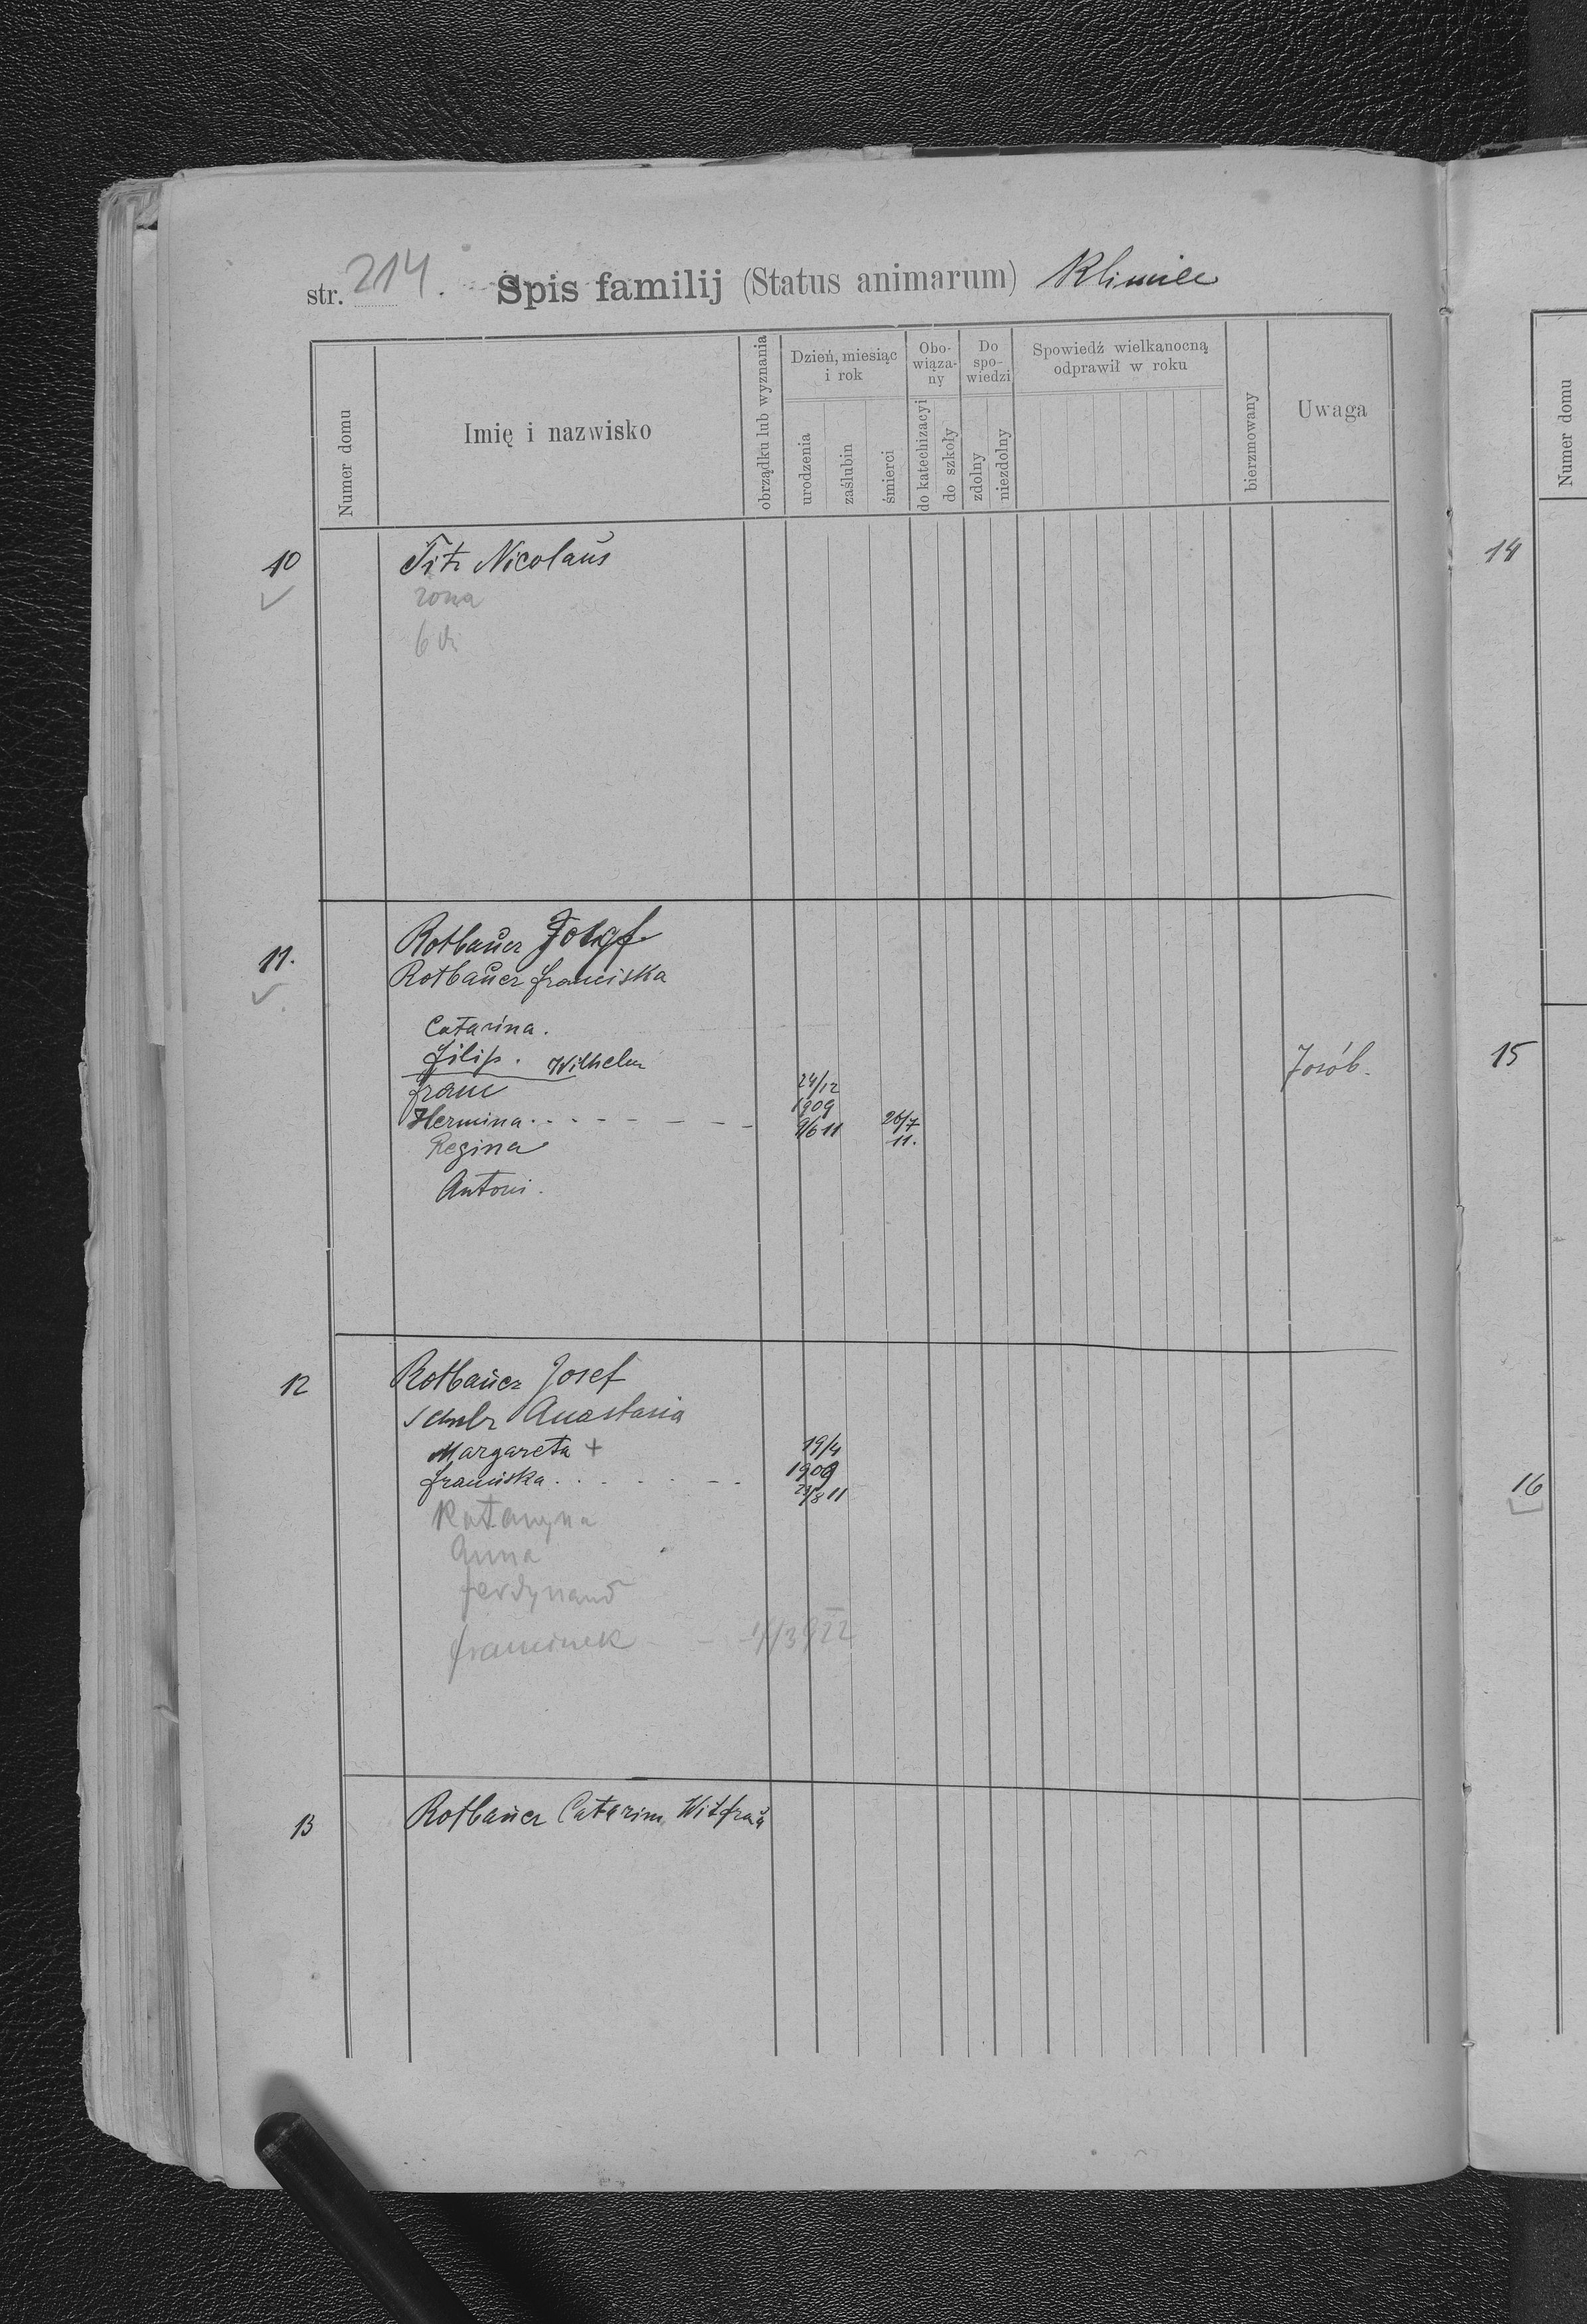 str. 214. Spis familij (Status animarum) Klimiec
Numer domu
Imię i nazwisko
obrządku lub wyznania
Dzień, miesiąc i rok
urodzenia
zaślubin
śmierci
Obo-wiąza-ny
do katechizacyi
do szkoły
Do spo-wiedzi
zdolny
niezdolny
Spowiedź wielkanocną odprawił w roku
bierzmowany
Uwaga
10 Titz Nicolaus
żona
6 dz
11. Rotbauer Josef
Rotbauer Franciska
Catarina.
Filip. Wilhelm
Franc 24/12 1909
Hermina 9/6 11 26/7 11.
Regina
Antoni.
12 Rotbauer Josef
Anastasia
Margareta + 19/4 1909
Franciska 8 11
Katarzyna
Anna
Ferdynand
Franciszek 922
13 Rotbauer Catarina Witfrau
Numer domu
14
15
16